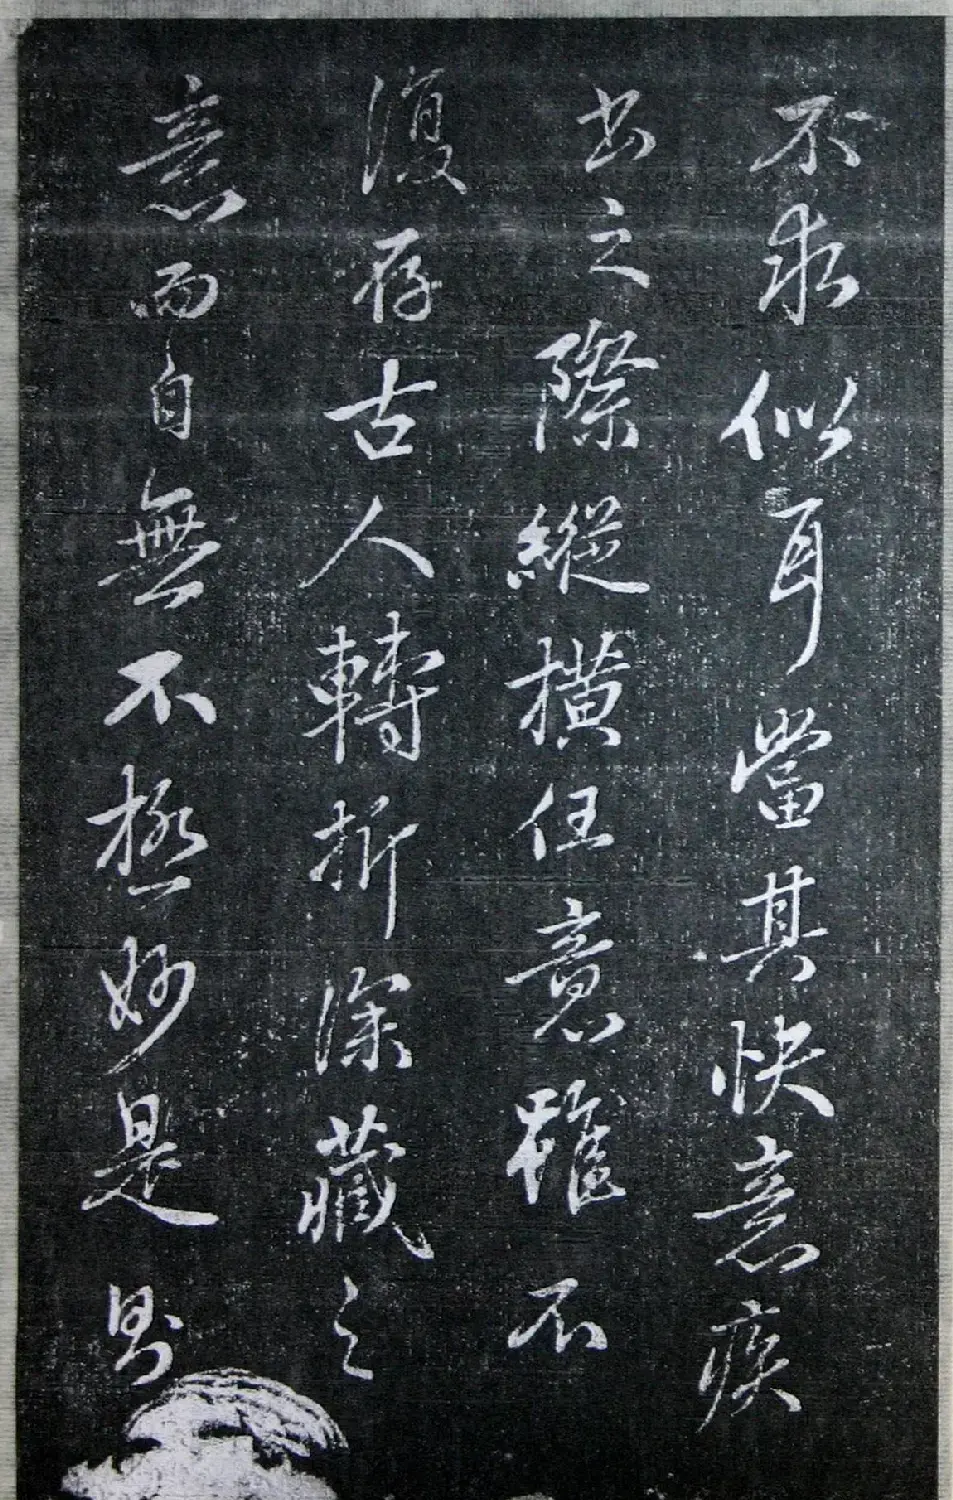 不求似耳當其快意疾
書之際縱橫任意雖不
復存古人轉折深藏之
意而自無不極妙是則